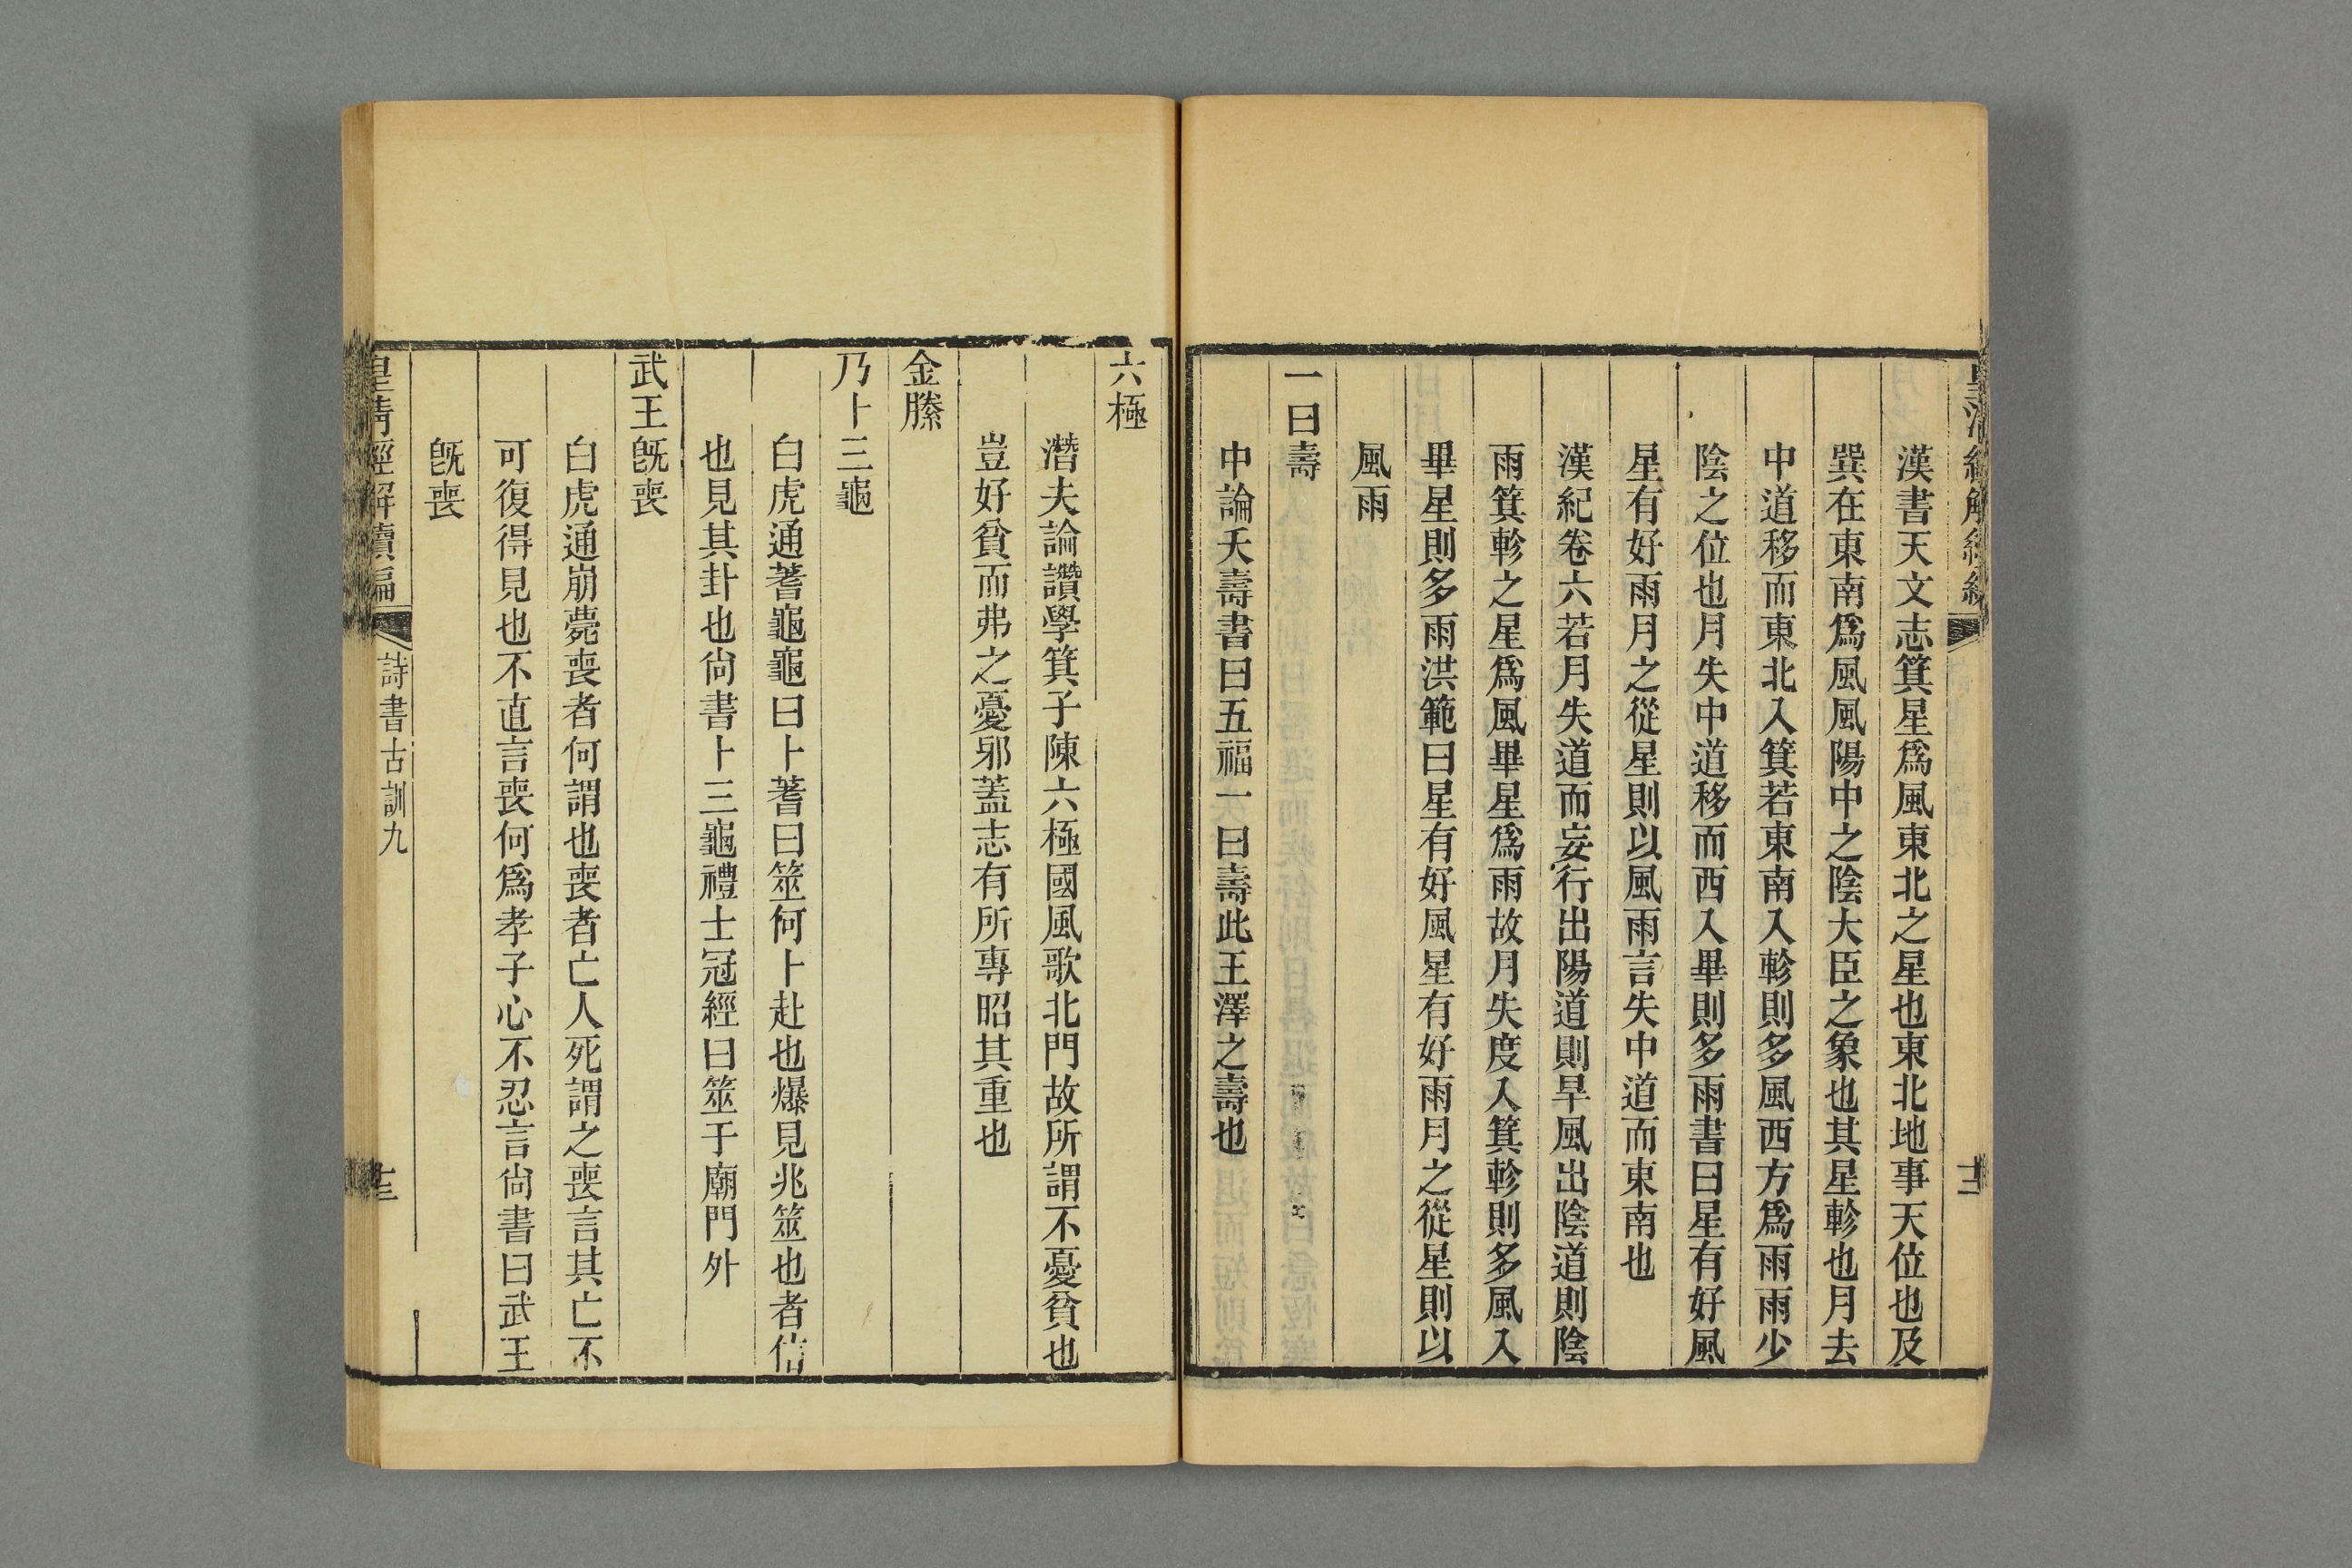 漢書天文志箕星爲風東北之星也東北地事天位也及
巽在東南爲風風陽中之陰大臣之象也其星軫也月去
中道移而東北入箕若東南入軫則多風西方爲雨雨少
陰之位也月失中道移而西入畢則多雨書曰星有好風
星有好雨月之從星則以風雨言失中道而東南也
漢紀卷六若月失道而妄行出陽道則旱風出陰道則陰
雨箕軫之星爲風畢星爲雨故月失度入箕軫則多風入
畢星則多雨洪範曰星有好風星有好雨月之從星則以
風雨
一曰壽
中論夭壽書曰五福一曰壽此王澤之壽也
六極
潛夫論讚學箕子陳六極國風歌北門故所謂不憂貧也
豈好貧而弗之憂邪蓋志有所專昭其重也
金縢
乃卜三龜
白虎通蓍龜龜曰卜蓍曰筮何卜赴也爆見兆筮也者信
也見其卦也尙書卜三龜禮士冠經曰筮于廟門外
武王旣喪
白虎通崩薨喪者何謂也喪者亡人死謂之喪言其亡不
可復得見也不直言喪何爲孝子心不忍言尙書曰武王
旣喪
皇淸經解續編
詩書古訓九
十三